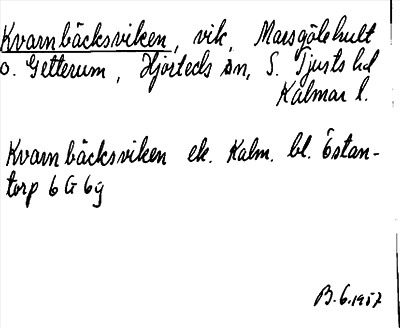 Kvarnbäcksviken, vik, Marsgölehult
o. Getterum, Hjorteds sn, S. Tjusts hd
Kalmar l.
Kvarnbäcksviken ek. Kalm. bl. Östan-
torp 6 G 6g
B. 6.1957